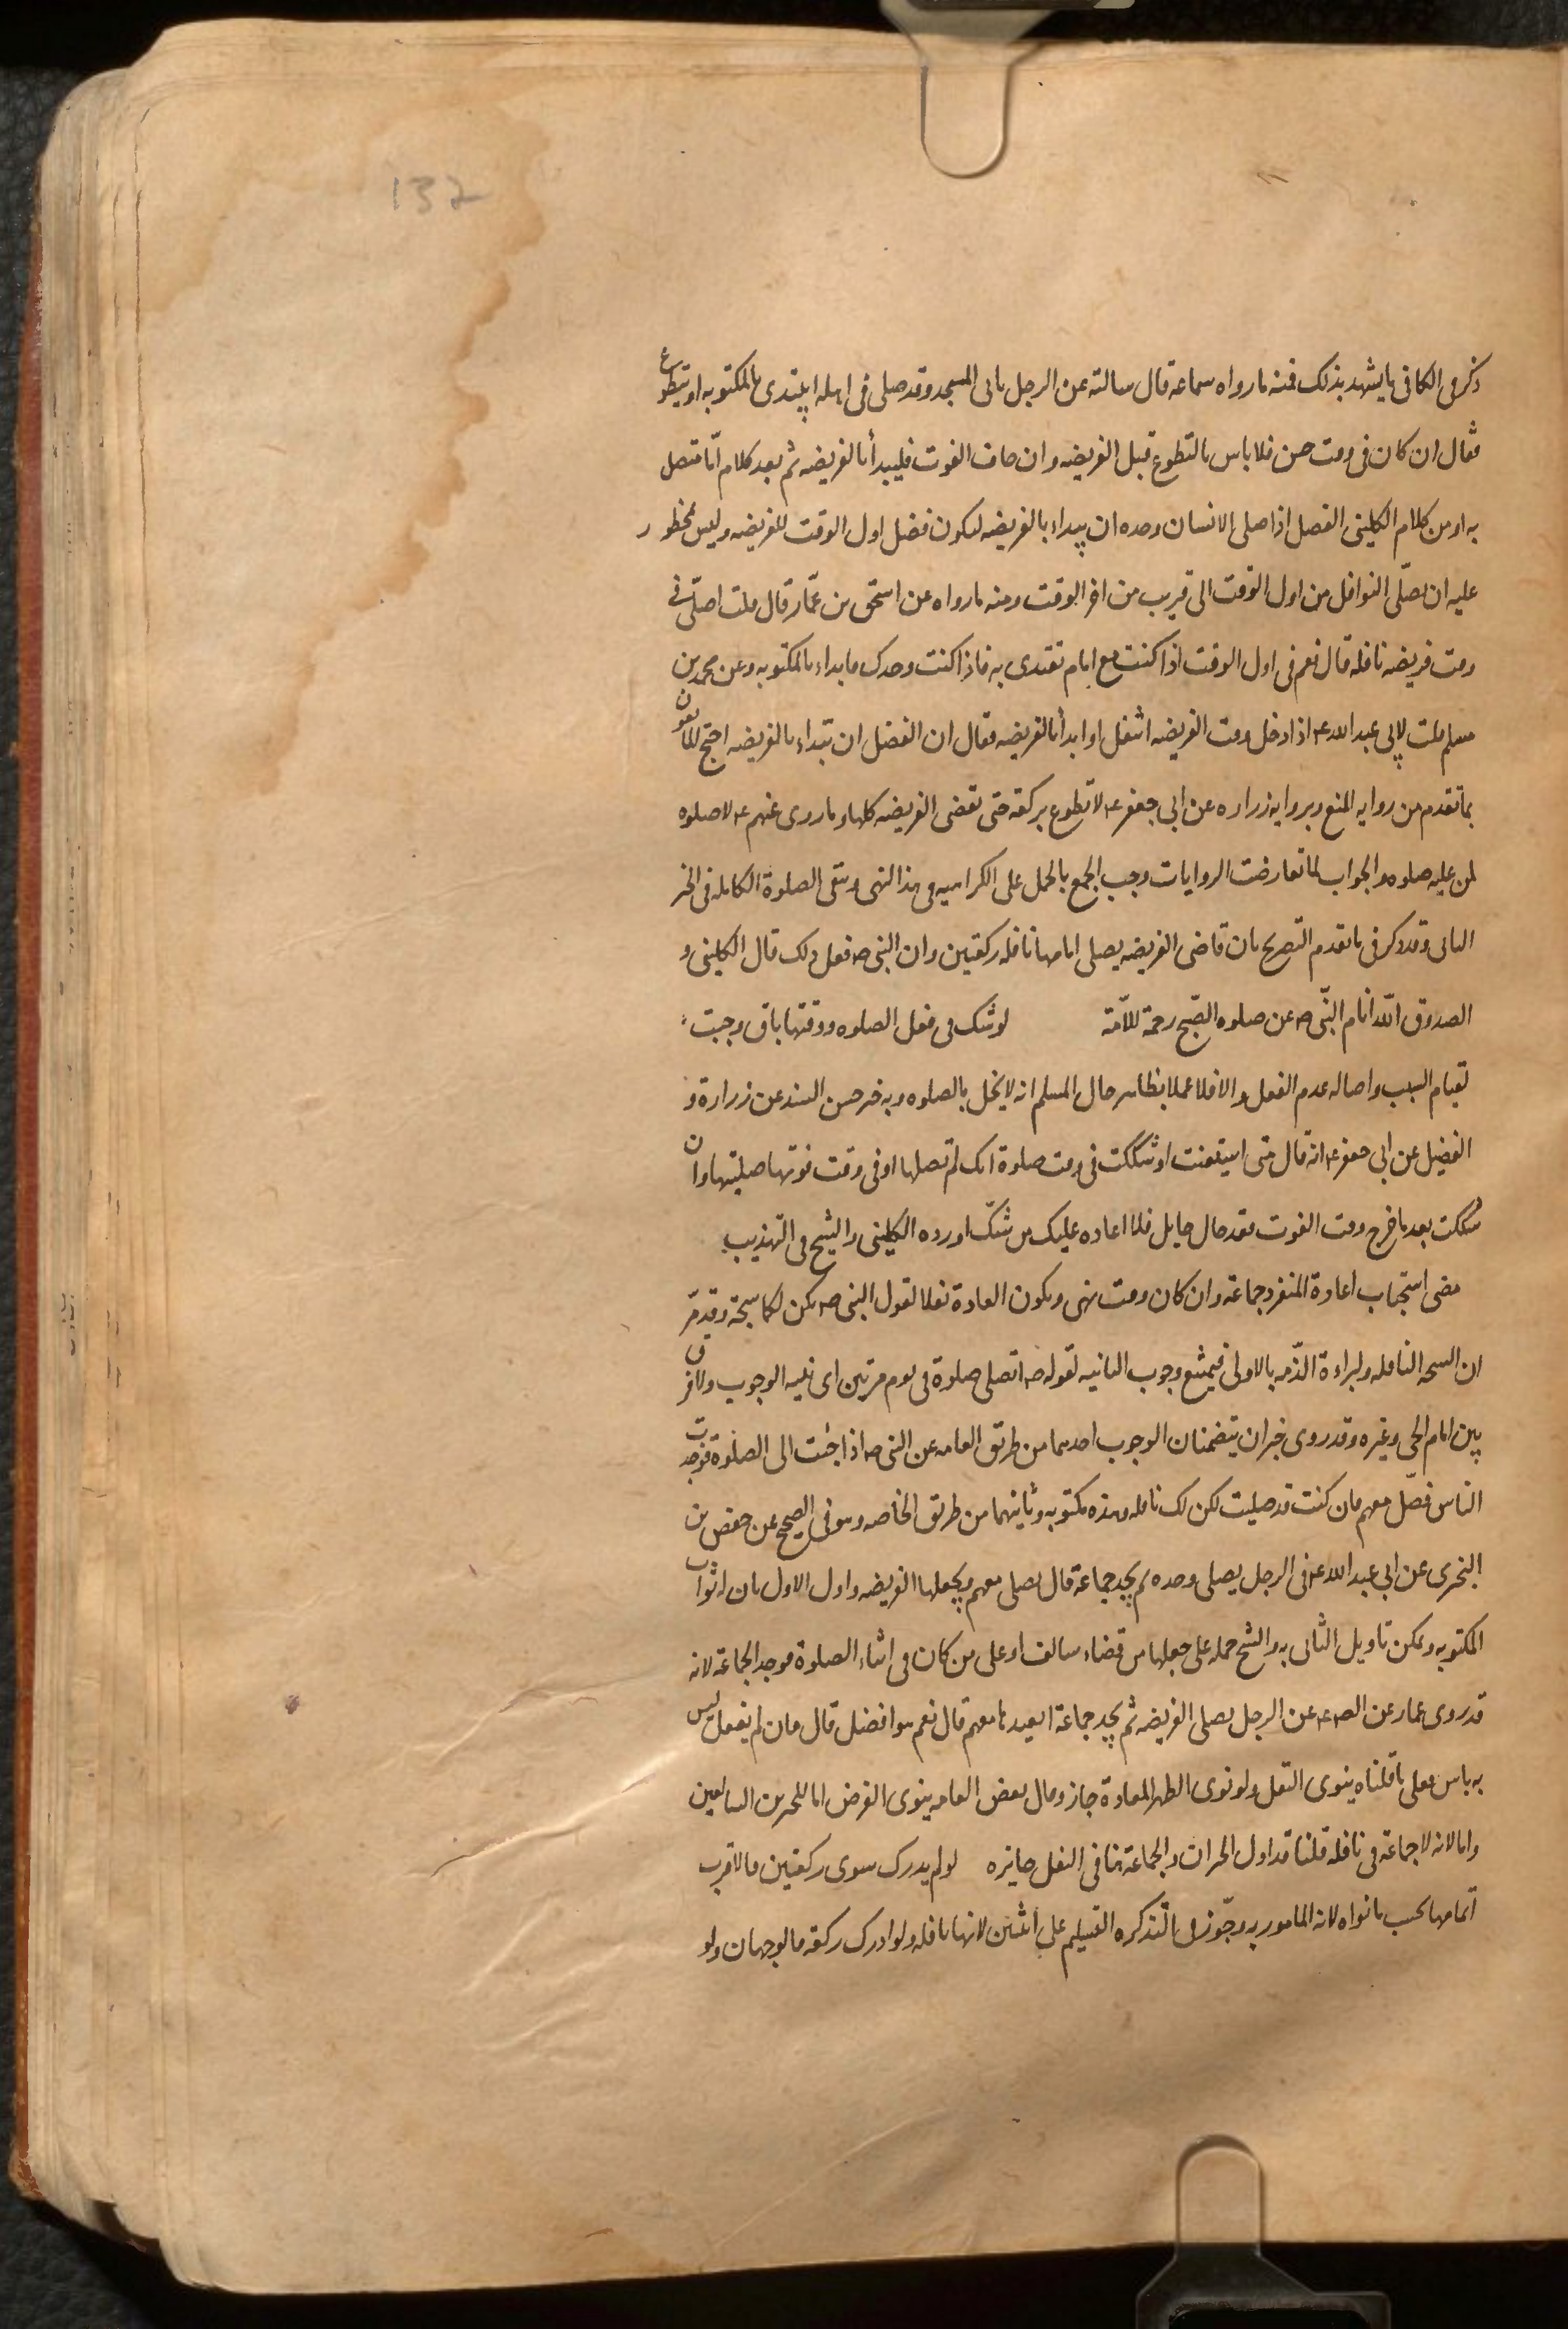 132
ذكر فى الكافى ما يشهد بذلك فمنه ما رواه سماعة قال سالته عن الرجل ياتى المسجد وقد صلى فى اهله ايبتدى بالمكتوبه او يتطوع
فقال ان كان فى وقت حسن فلا باس بالتطوع قبل الفريضه وان خاف الفوت فليبدأ بالفريضه ثم بعد كلام امّا متصل
به او من كلام الكلينى الفضل اذا صلى الانسان وحده ان يبداء بالفريضه ليكون فضل اول الوقت للفريضه وليس بمحظور
عليه ان يصلّى النوافل من اول الوقت الى قريب من اخر الوقت ومنه ما رواه عن اسحق بن عمّار قال قلت اصلّى فى
وقت فريضه نافله قال نعم فى اول الوقت اذا كنت مع امام تقتدى به فاذا كنت وحدك فابداء بالمكتوبه وعن محمد بن
مسلم قلت لابى عبد الله ع اذا دخل وقت الفريضه اتنفل او ابدأ بالفريضه فقال ان الفضل ان تبداء بالفريضه احتج المانعون
بما تقدم من روايه المنع وبروايه زراره عن ابى جعفر ع لا تطوع بركعة حتى تقضى الفريضه كلها وما روى عنهم ع لا صلوه
لمن عليه صلوه والجواب لما تعارضت الروايات وجب الجمع بالحمل على الكراهيه فى هذا النهى ونفى الصلوة الكامله فى الخبر
الثانى وقد ذكر فى ما تقدم التصريح بان قاضى الفريضه يصلى امامها نافله ركعتين وان النبى ص فعل ذلك قال الكلينى و
الصدوق ان الله انام النّبى ص عن صلوه الصّبح رحمة للاّمة لو شك فى فعل الصلوه ووقتها باق وجبت
لقيام السبب واصاله عدم الفعل والا فلا عملا بظاهر حال المسلم انه لا يخل بالصلوه وبه خبر حسن السند عن زرارة و
الفضيل عن ابى جعفر ع انه قال متى استيقنت او شككت فى وقت صلوة انك لم تصلها او فى وقت فوتها صليتها وان
شككت بعد ما خرج وقت الفوت فقد حال حايل فلا اعاده عليك من شكّ اورده الكلينى والشيخ فى التهذيب
مضى استحباب اعادة المنفرد جماعة وان كان وقت نهى ويكون المعادة نفلا لقول النبى ص يكن لكما سبحة وقد مرّ
ان السبحه النافله ولبراءة الذّمه بالاولى فيمتنع وجوب الثانيه لقوله ص اتصلى صلوة فى يوم مرتين اى نيه الوجوب ولا فرق
بين امام الحى وغيره وقد روى خبران يتضمنان الوجوب احدهما من طريق العامه عن النبى ص اذا جئت الى الصلوة فوجدت
الناس فصلّ معهم فان كنت قد صليت تكن لك نافله وهذه مكتوبه وثانيهما من طريق الخاصه وهو فى الصحيح عن حفص بن
البخترى عن ابى عبد الله ع فى الرجل يصلى وحده ثم يجد جماعة قال يصلى معهم ويجعلها الفريضه واول الاول بان له ثواب
المكتوبه ويمكن تاويل الثانى به والشيخ حمله على جعلها من قضاء سالف او على من كان فى اثناء الصلوة فوجد الجماعة لانه
قد روى عمار عن الص ع عن الرجل يصلى الفريضه ثم يجد جماعة ايعيدها معهم قال نعم هو افضل قال فان لم يفعل ليس
به باس فعلى ما قلناه ينوى النفل ولو نوى الظهر المعادة جاز وقال بعض العامه ينوى الفرض اما للخبرين السابقين
واما لانه لا جماعة فى نافله قلنا قد اول الخبران والجماعة هنا فى النفل جايزه لو لم يدرك سوى ركعتين فالاقرب
اتمامها بحسب ما نواه لانه المامور به وجّوز فى التّذكره التسليم على اثنتين لانها نافله ولو ادرك ركعة فالوجهان ولو